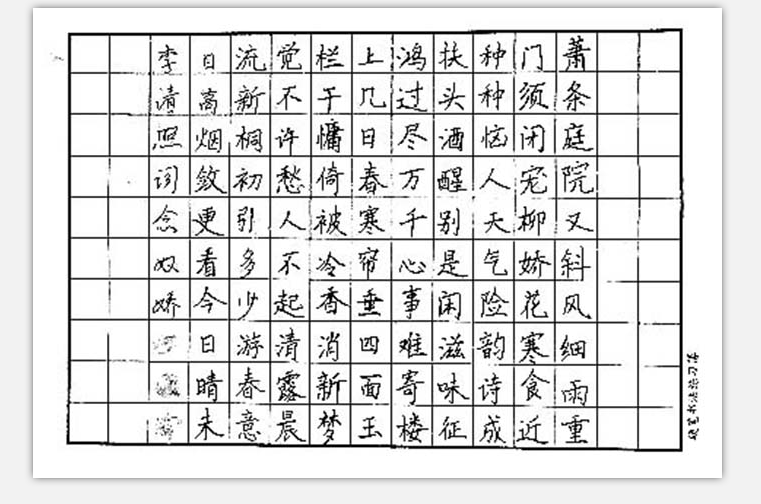 萧条庭院又斜风细雨重
门须闭宠柳娇花寒食近
种种恼人天气险韵诗成
扶头酒醒别是闲滋味征
鸿过尽万千心事难寄楼
上几日春寒帘垂四面玉
栏干慵倚被冷香消新梦
觉不许愁人不起清露晨
流新桐初引多少游春意
日高烟敛更看今日晴未
李清照词念奴娇
硬笔书法练习